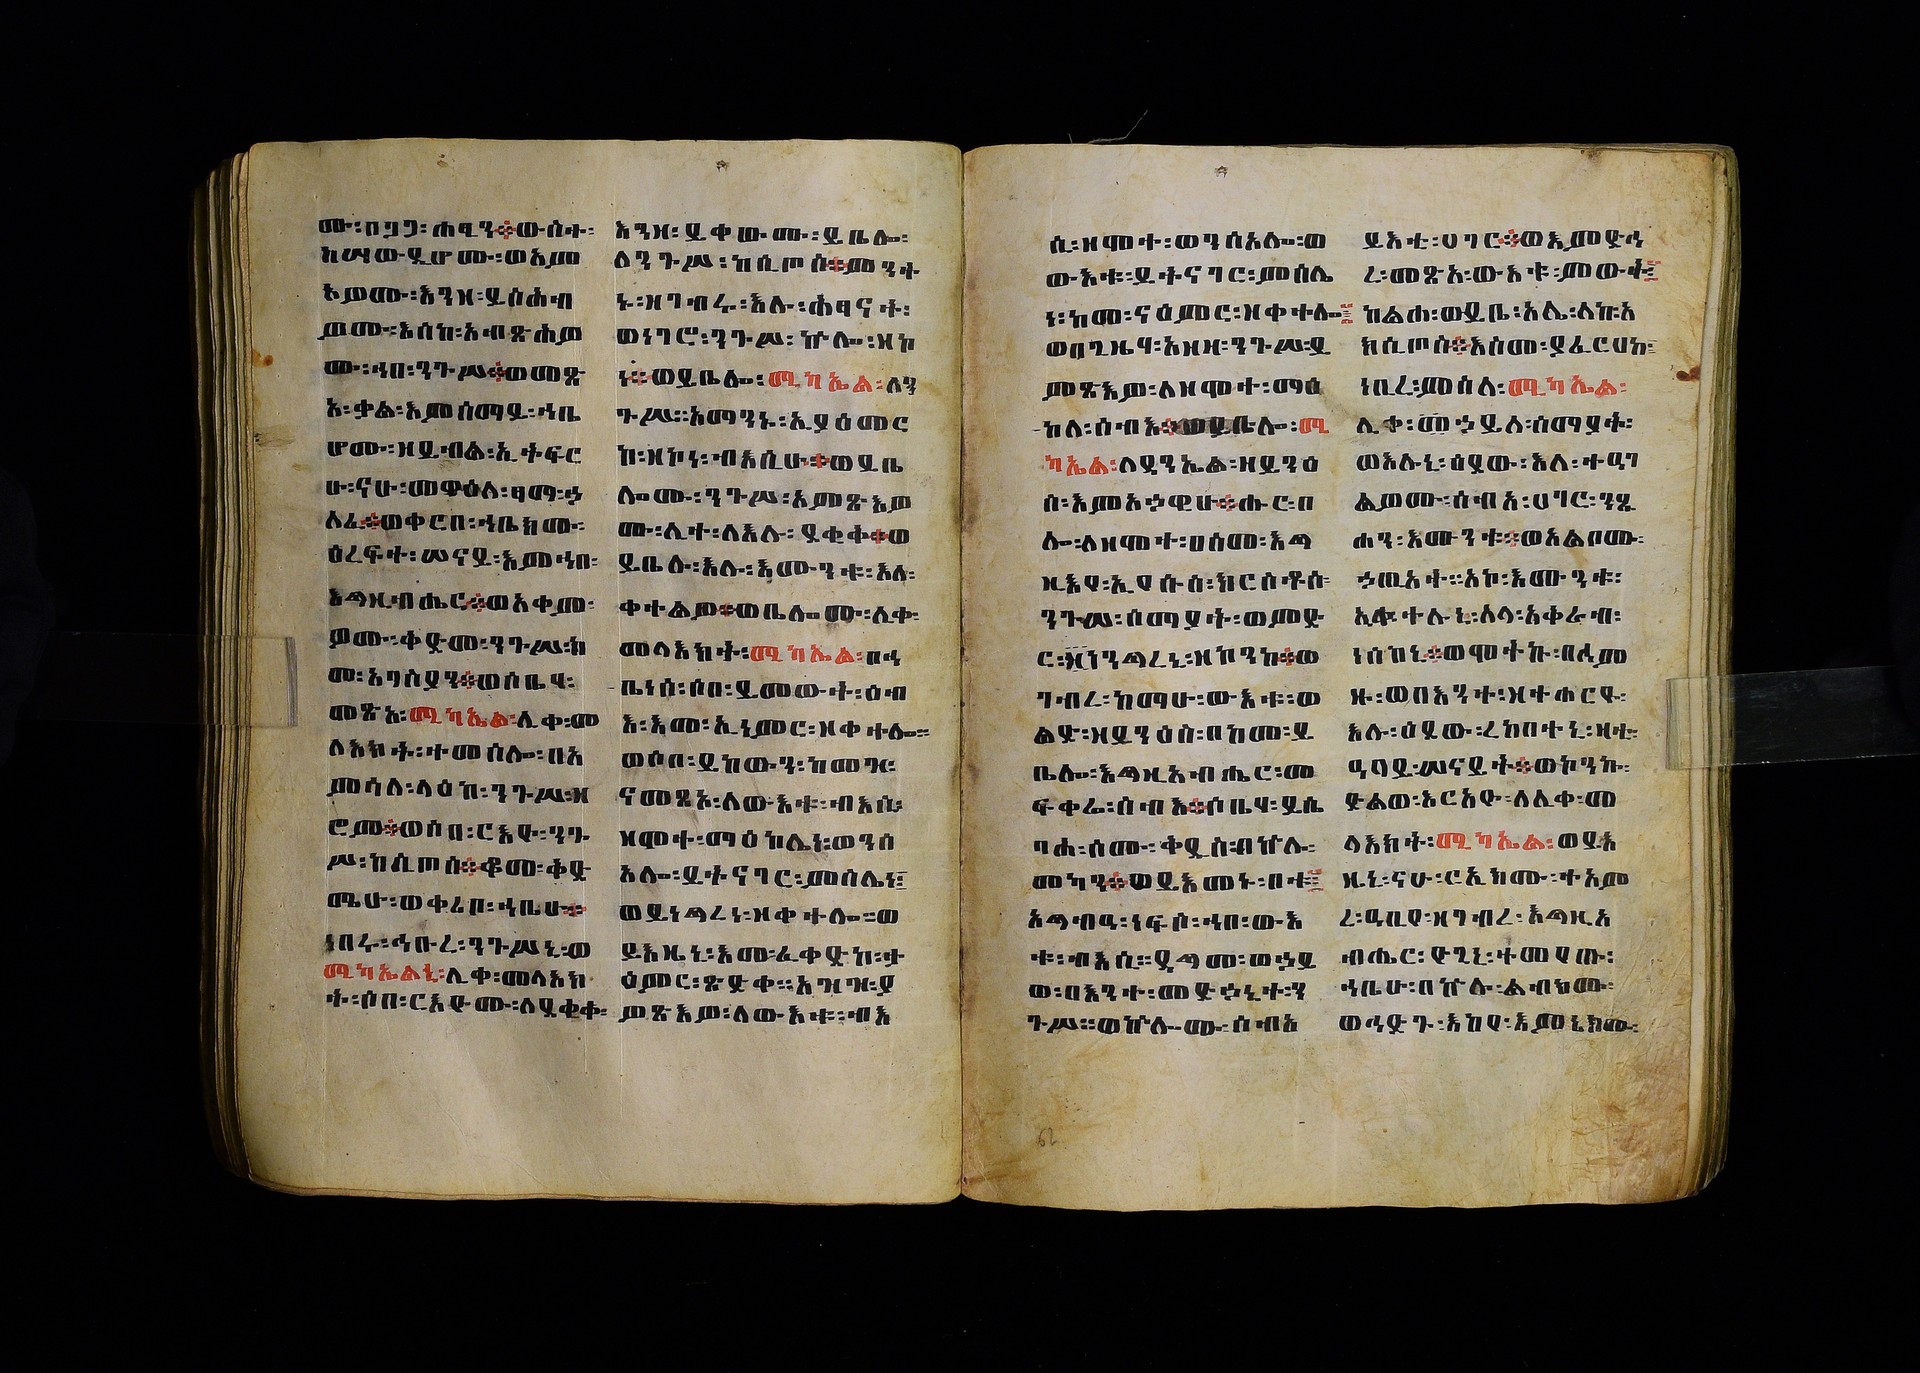 ሙ፡በዓጋ፡ሐፂን፨ውስተ፡
ከሣውዲሆሙ፡ወአም
ጽእዎሙ፡እንዘ፡ይስሕብ
ዎሙ፡እስከ፡አብጽሕዎ
ሙ፡ኀበ፡ንጉሥ፨ወመጽ
አ፡ቃል፡እምሰማይ፡ኀቤ
ሆሙ፡ዘይብል፡ኢትፍር
ሁ፡ናሁ፡መዋዕለ፡ፃማ፡ኃ
ለፈ፨ወቀርበ፡ኀቤክሙ፡
ዕረፍት፡ሠናይ፡እምኀበ፡
እግዚብሔር፨ወአቀሙ፡
ዎሙ፡ቅድመ፡ንጉሥ፡ከ
መ፡አግስያን፨ወሶቤሃ፡
መጽአ፡ሚካኤል፡ሊቀ፡መ
ላእክት፡ተመሰሎ፡በአ
ምሳለ፡ላዕከ፡ንጉሥ፡ዘ
ሮም፨ወሶበ፡ርእዮ፡ንጉ
ሥ፡ከሲጦስ፨ቆመ፡ቅድ
ሜሁ፡ወቀረበ፡ኀቤሁ፨
ነበሩ፡ኅቡረ፡ንጉሥኒ፡ወ
ሚካኤልኒ፡ሊቀ፡መላእክ
ት፡ሶበ፡ርእዮሙ፡ለደቂቅ፡
እንዘ፡ይቀውሙ፡ይቤሎ፡
ለንጉሥ፡ከሲጦስ፨ምንት
ኑ፡ዘገብሩ፡እሉ፡ሕፃናት፡
ወነገሮ፡ንጉሥ፡ኵሎ፡ዘኮ
ነ፨ወይቤሎ፡ሚካኤል፡ለን
ጉሥ፡፡አማንኑ፡ኢያዕመር
ከ፡ዘኮነ፡ብእሲሁ፨ወይቤ
ሎሙ፡ንጉሥ፡አምጽእዎ
ሙ፡ሊተ፡ለእሉ፡ደቂቅ፨ወ
ይቤሉ፡እሉ፡እሙንቱ፡እለ፡
ቀተልዎ፨ወቤሎሙ፡ሊቀ፡
መላእክት፡ሚካኤል፡በኀ
ቤነሰ፡ሶበ፡ይመውት፡ዕብ
እ፡እመ፡ኢነአምር፡ዘቀተሎ፡፡
ወሶበ፡ይከውን፡ከመዝ፡
ናመጽኦ፡ለውእቱ፡ብእሲ፡
ዘሞተ፡ማዕከሌነ፡ወንሰ
አሎ፡ይትናገር፡ምስሌነ፤
ወይነግረነ፡ዘቀተሎ፡፡ወ
ይእዜኒ፡እመ፡ፈቀድከ፡ታ
ዕምር፡ጽድቀ፡፡አዝዝ፡ያ
ምጽእዎ፡ለውእቱ፡ብእ
ሲ፡ዘሞተ፡ወንሰአሎ፡ወ
ውእቱ፡ይትናገር፡ምስሌ
ነ፡ከመ፡ናዕምር፡ዘቀተሎ፤
ወበጊዜሃ፡አዘዘ፡ንጉሥ፡ያ
ምጽእዎ፡ለዘሞተ፡ማዕ
ከለ፡ሰብእ፨ወይቤሎ፡ሚ
ካኤል፡ለዳንኤል፡ዘይንዕ
ስ፡እምአኃዊሁ፨ሑር፡በ
ሎ፡ለዘሞተ፡በስመ፡እግ
ዚእየ፡ኢየሱስ፡ክርስቶስ፡
ንጉሠ፡ሰማያት፡ወምድ
ር፡ዜነንግረኒ፡ዘኮንከ፨ወ
ገብረ፡ከማሁ፡ውእቱ፡ወ
ልድ፡ዘይንዕስ፡በከመ፡ይ
ቤሎ፡እግዚአብሔር፡መ
ፍቀሬ፡ሰብእ፨ሶቤሃ፡ይሴ
ባሕ፡ስሙ፡ቅዱስ፡በኵሉ፡
መካን፨ወይእመኑ፡በቱ፤
አግብዓ፡ነፍሶ፡ኀበ፡ውእ
ቱ፡ብእሲ፡፡ዳግመ፡ወኃይ
ወ፡በእንተ፡መድኃኒተ፡ን
ጉሥ፡፡ወኵሎሙ፡ሰብአ
ይእቲ፡ሀገር፨ወእምድኅ
ረ፡መጽአ፡ውእቱ፡ምውት፤
ከልሐ፡ወይቤ፡አሌ፡ለከ፡አ
ክሲጦስ፨እስመ፡ያፈርሀከ፡
ነቢረ፡ምስለ፡ሚካኤል፡
ሊቀ፡መኃይለ፡ሰማያት፡
ወእሉኒ፡ዕደው፡እለ፡ተዓገ
ልዎሙ፡ሰብአ፡ሀገር፡ንጹ
ሐን፡እሙንቱ፨ወአልቦሙ፡
ኃጢአት፡፡አኮ፡እሙንቱ፡
እለ፡ቀተሉኒ፡ለላ፡አቅራብ፡
ነስከኒ፨ወሞትኩ፡በሕም
ዙ፡ወበእንተ፡ዘተሐርዩ፡
እሉ፡ዕደው፡ረከበተኒ፡ዛቲ፡
ዓባይ፡ሠናይት፨ወኮንኩ፡
ድልወ፡እርአዮ፡ለሊቀ፡መ
ላእክት፡ሚካኤል፡ወይእ
ዜኒ፡ናሁ፡ርኢክሙ፡ተአም
ረ፡ዓቢየ፡ዘገብረ፡እግዚአ
ብሔር፡ዮጊኒ፡ተመየጡ፡
ኀቤሁ፡በኵሉ፡ልብክሙ፡
ወኅድጉ፡እከየ፡እምኔክሙ፡
62